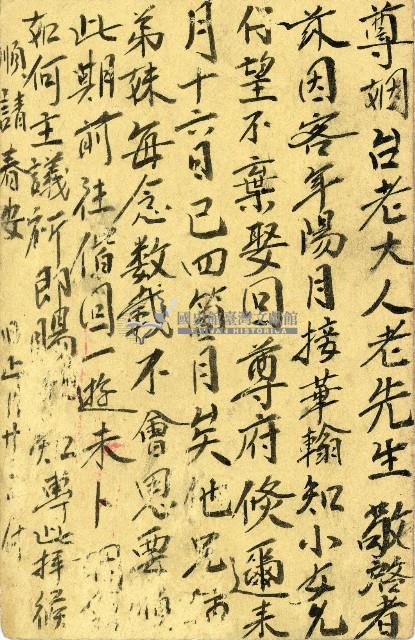 尊姻台老大人老先生敬啓者
茲因客年陽月接華翰知小女允
付望不棄娶回尊府倐邇来
月十六日已四箇月矣他兄
弟妹每念数載不會思要順
此期前往偕回一遊未卜
如何主議祈即賜 專此拝候
順請春安
國立臺灣文學館